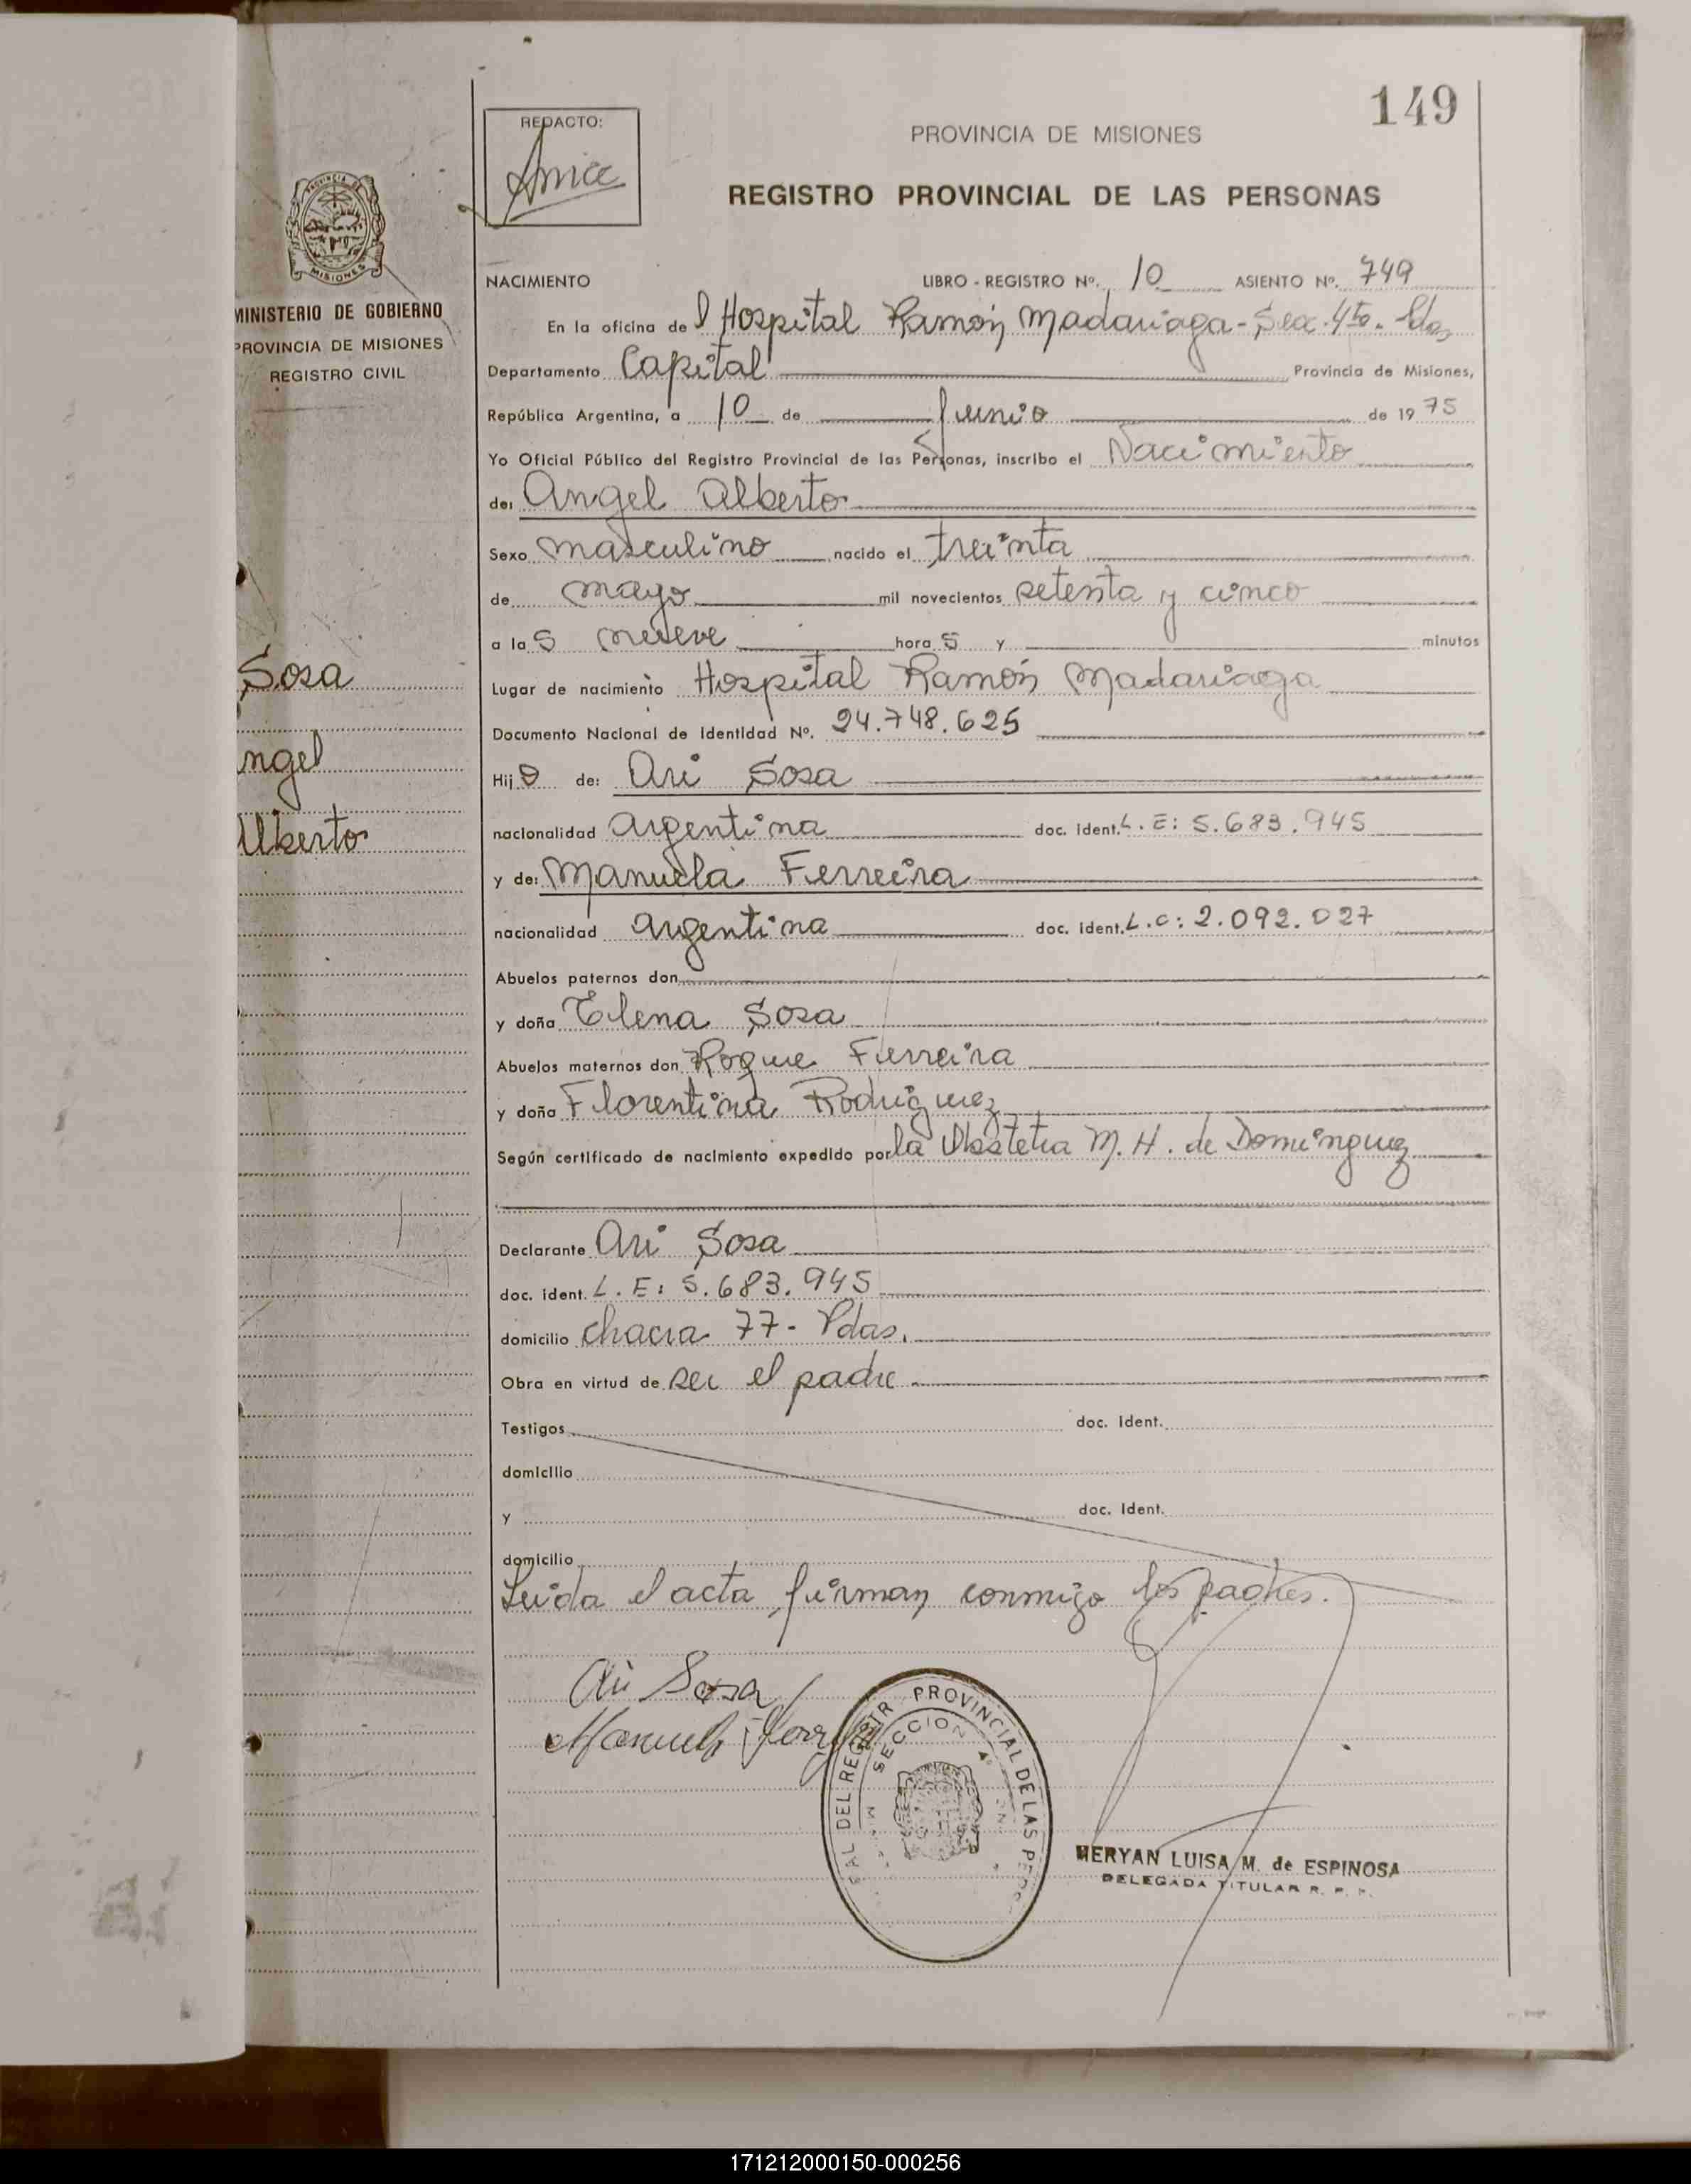 149
REDACTO:
PROVINCIA DE MISIONES
REGISTRO PROVINCIAL DE LAS PERSONAS
MISIONES
MINISTERIO DE GOBIERNO
PROVINCIA DE MISIONES
REGISTRO CIVIL
Sosa
ngel
Alberto
NACIMIENTO LIBRO - REGISTRO Nº. 10 ASIENTO Nº. 749
En la oficina del Hospital Ramón Madariaga - Secc. 4ta. Pdas
Departamento Capital Provincia de Misiones,
República Argentina, a 10 de Junio de 1975
Yo Oficial Público del Registro Provincial de las Personas, inscribo el Nacimiento
de: Angel Alberto
Sexo masculino nacido el treinta
de mayo mil novecientos setenta y cinco
a las nueve horas y minutos
Lugar de nacimiento Hospital Ramón Madariaga
Documento Nacional de Identidad Nº. 24.748.625
Hijo de: Ari Sosa
nacionalidad argentina doc. ident. L.E: 5.683.945
y de: Manuela Ferreira
nacionalidad argentina doc. ident. L.C: 2.092.027
Abuelos paternos don
y doña Elena Sosa
Abuelos maternos don Roque Ferreira
y doña Florentina Rodriguez
Según certificado de nacimiento expedido por la Obstetra M. H. de Dominguez
Declarante Ari Sosa
doc. ident. L.E: 5.683.945
domicilio chacra 77- Pdas.
Obra en virtud de ser el padre
Testigos doc. Ident.
domicilio
y doc. Ident.
domicilio
Leida el acta firman conmigo los padres.
Ari Sosa
PROVINCIAL DE LAS
SECCION
MERYAN LUISA M. de ESPINOSA
DELEGADA TITULAR R. P. P.
171212000150-000256